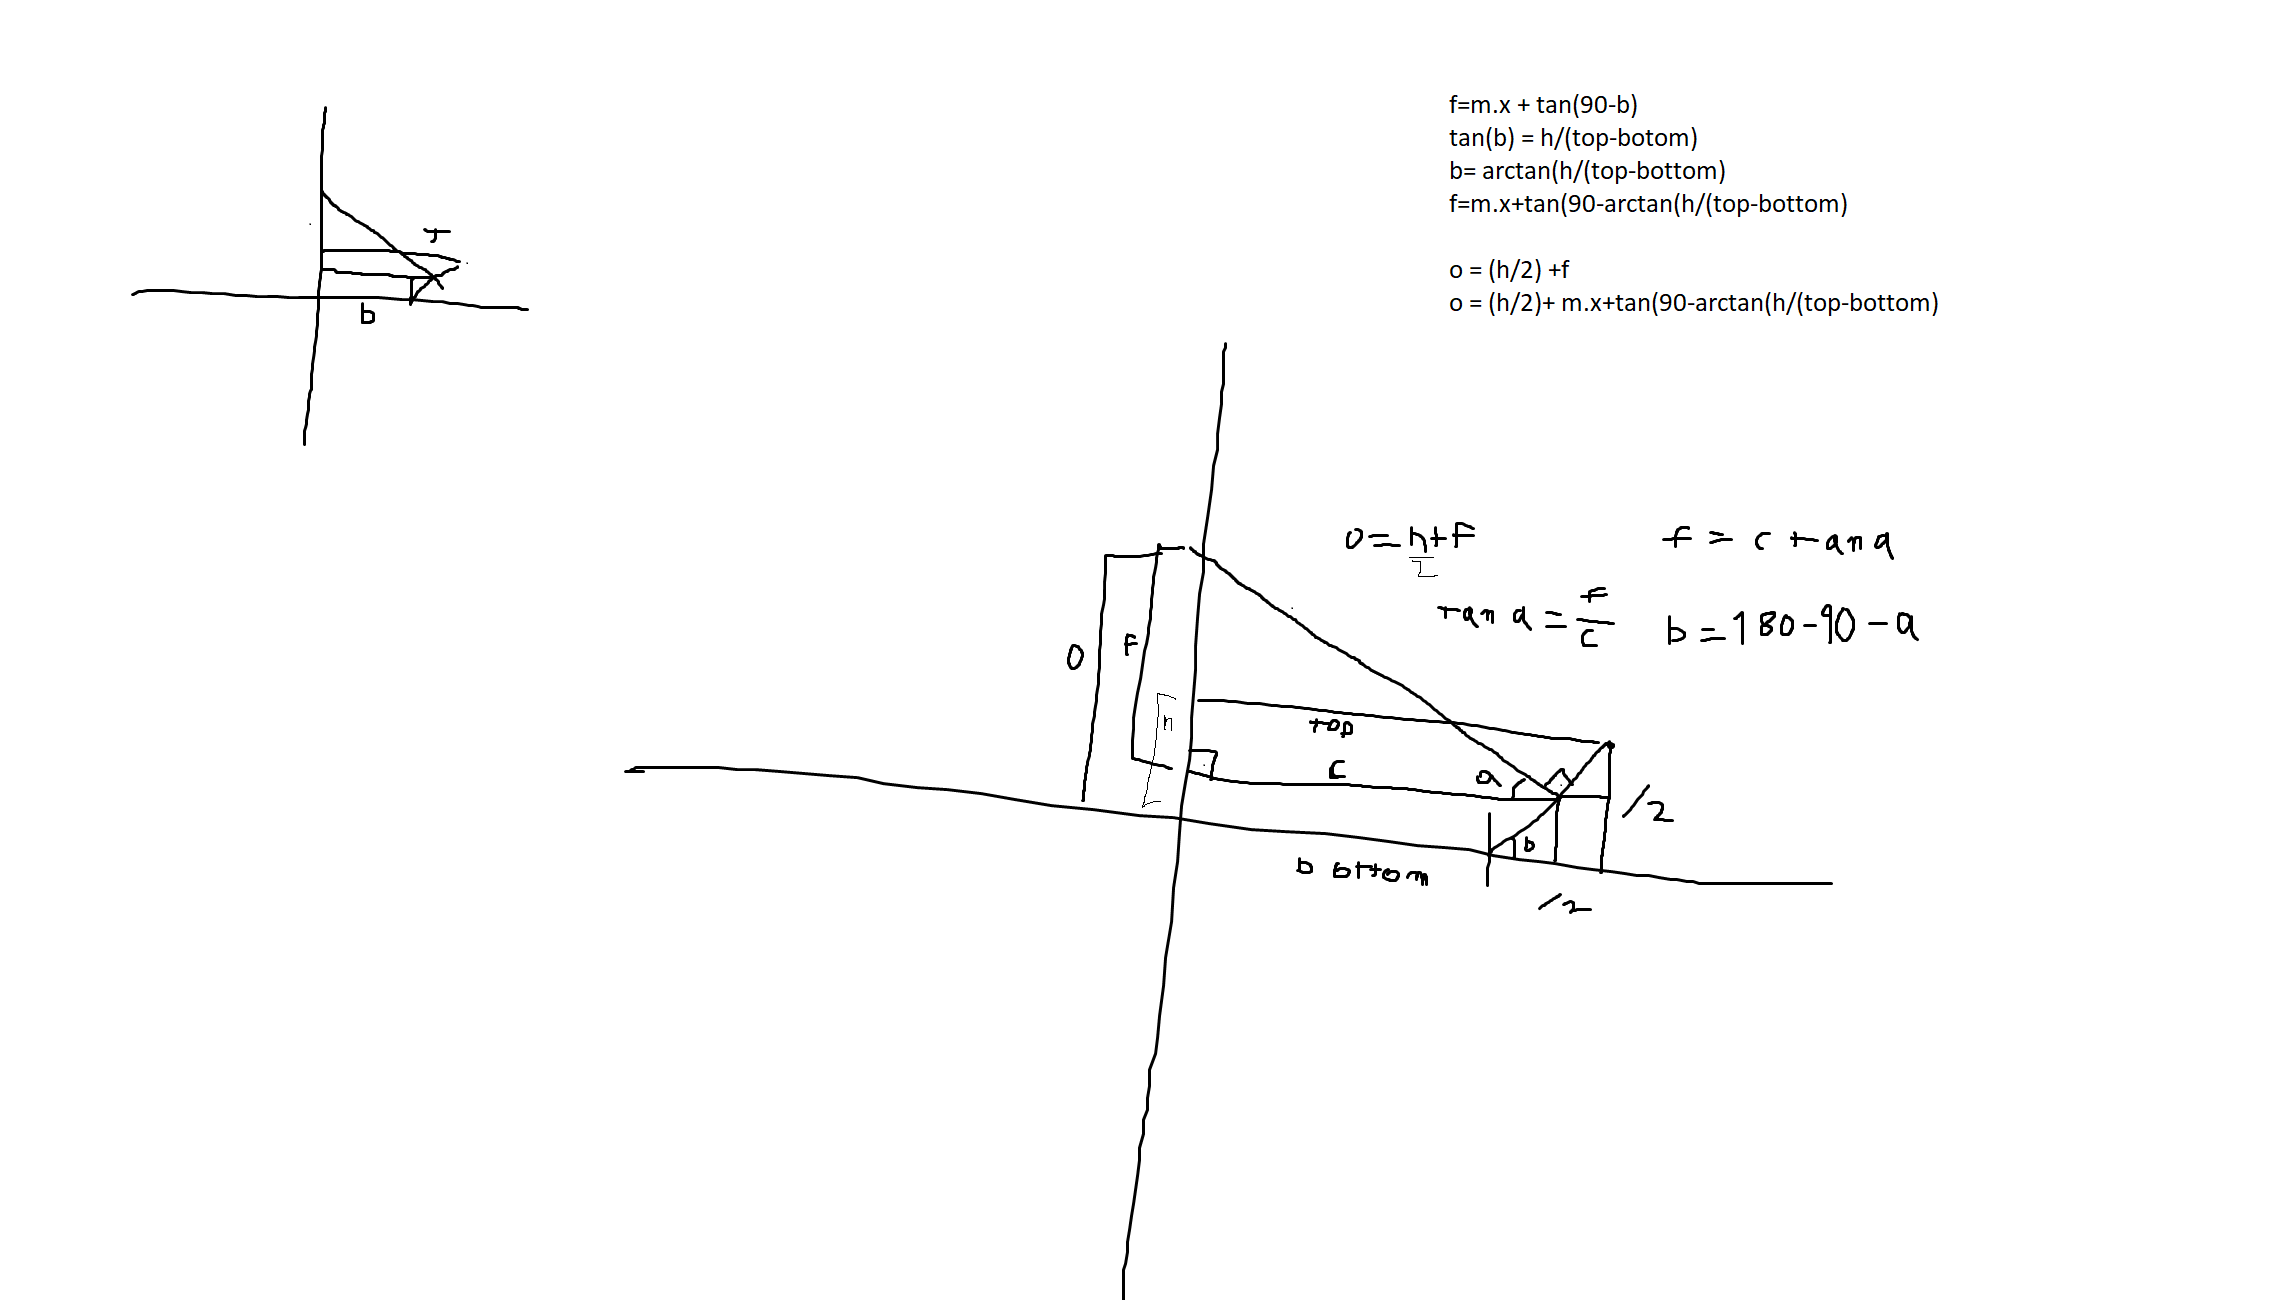 f=m.x + tan(90-b)
tan(b) = h/(top-botom)
b= arctan(h/(top-bottom)
f=m.x+tan(90-arctan(h/(top-bottom)
o = (h/2) +f
o = (h/2)+ m.x+tan(90-arctan(h/(top-bottom)
b
o = h/2 + F
f = c tan a
tan a = F/c
b = 180-90-a
O
F
h
top
c
a
/2
b
b ottom
/2